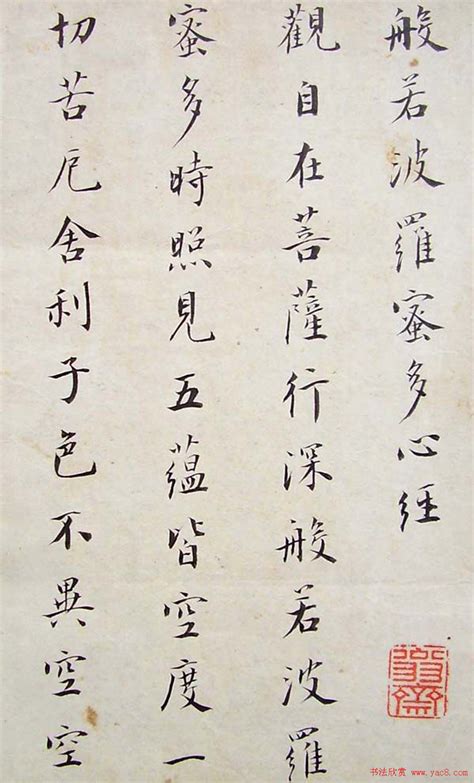 般若波羅蜜多心經
觀自在菩薩行深般若波羅
蜜多時照見五蘊皆空度一
切苦厄舍利子色不異空空
书法欣赏 www.yac8.com